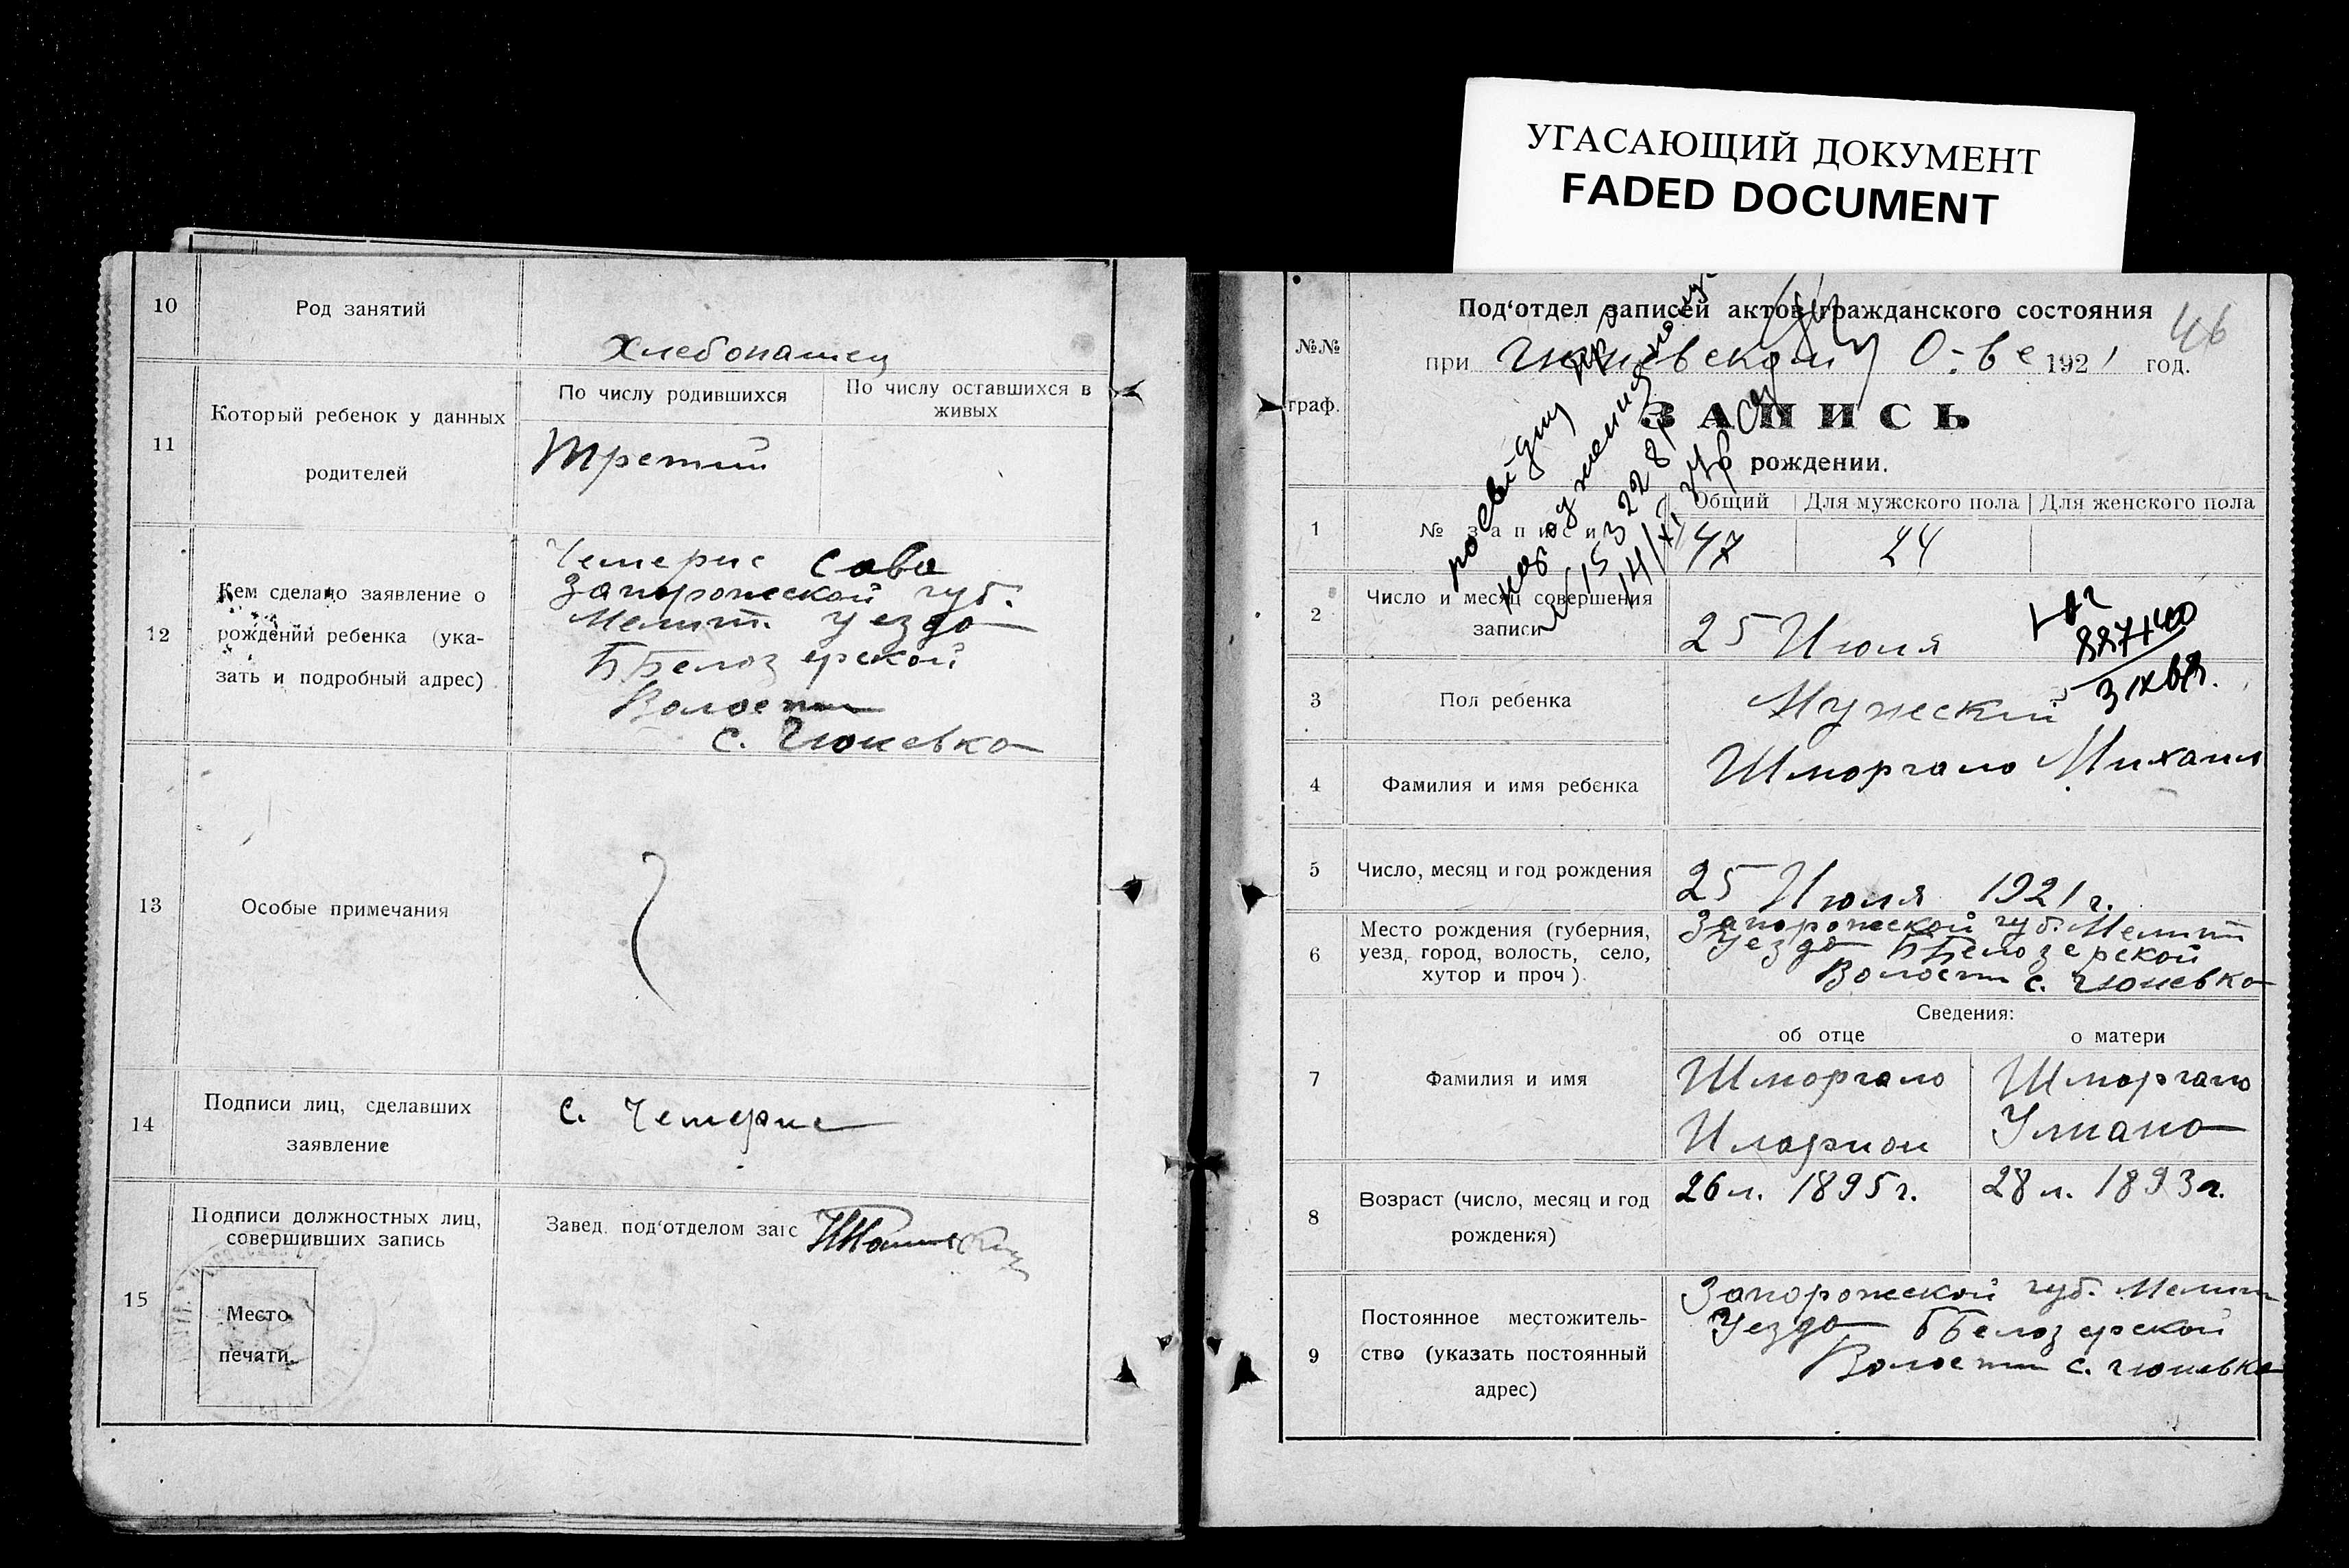 УГАСАЮЩИЙ ДОКУМЕНТ
FADED DOCUMENT
10
Род занятий
Хлебопашец
11
Который ребенок у данных
родителей
По числу родившихся
По числу оставшихся в
живых
Третий
12
Кем сделано заявление о
рождении ребенка (ука-
зать и подробный адрес)
Чемерис Сава
Запорожской губ.
Мелит. уезда
ББелозерской
Волости
с. Гюневка
13
Особые примечания
14
Подписи лиц, сделавших
заявление
С. Чемерис
15
Подписи должностных лиц,
совершивших запись
Завед. под'отделом загс
Место
печати.
Под'отдел записей актов гражданского состояния
46
№№
граф.
при Гюневском О-ве 1921 год.
ЗАПИСЬ
о рождении.
1
№ записи
Общий
Для мужского пола
Для женского пола
47
24
2
Число и месяц совершения
записи
25 Июля
3
Пол ребенка
Мужский
4
Фамилия и имя ребенка
Шморгало Михаил
5
Число, месяц и год рождения
25 Июля 1921 г.
6
Место рождения (губерния,
уезд, город, волость, село,
хутор и проч).
Запорожской губ. Мелит
Уезда ББелозерской
Волости с. Гюневка
Сведения:
об отце
о матери
7
Фамилия и имя
Шморгало
Иларион
Шморгало
Улиана
8
Возраст (число, месяц и год
рождения)
26 л. 1895 г.
28 л. 1893 г.
9
Постоянное местожитель-
ство (указать постоянный
адрес)
Запорожской губ. Мелит
Уезда ББелозерской
Волости с. Гюневка